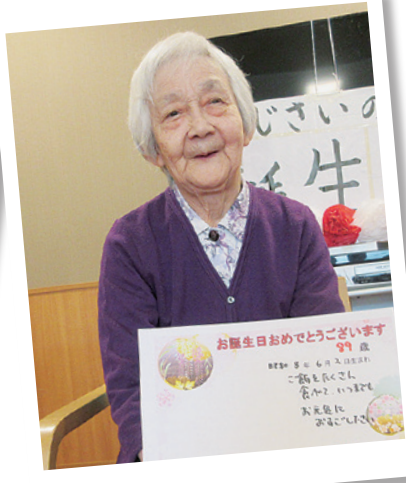 じさいの
生
お誕生日おめでとうございます
89 歳
昭和 5年 6月 2日生まれ
ご飯をたくさん
食べて、いつまでも
お元気に
おすごし下さい